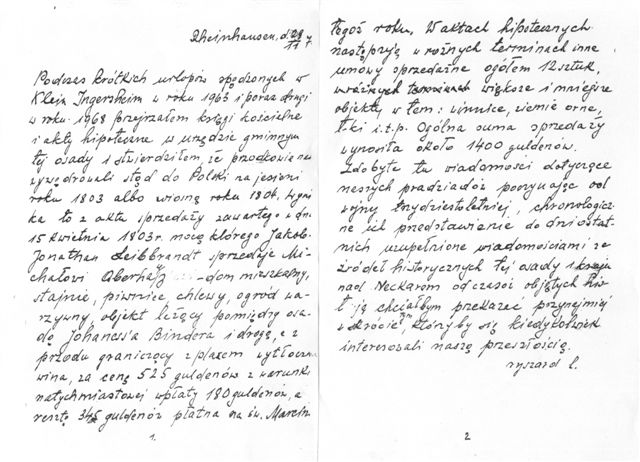 Rheinhausen, d. 29/11
Podczas krótkich urlopów spędzonych w
Klein Ingersheim w roku 1963 i poraz drugi
w roku 1968 przejrzałem księgi kościelne
i akty hipoteczne w urzędzie gminnym
tej osady i stwierdziłem, że przodkowie nasi
wywędrowali stąd do Polski na jesieni
roku 1803 albo wiosną roku 1804. Wyni
ka to z aktu sprzedaży zawartego w dn.
15 kwietnia 1803 r. mocą którego Jakob-
Jonathan Leibbrandt sprzedaje Mi-
chałowi dom mieszkalny,
stajnię, piwnice, chlewy, ogród wa-
rzywny, objekt leżący pomiędzy osa-
dą Johanes'a Bindera i drogą, a z
przodu graniczący z placem wytłoczni
wina, za cenę 525 guldenów z warunk.
natychmiastowej wpłaty 180 guldenów, a
resztę 345 guldenów płatna na św. Marcin
1.
tegoż roku. W aktach hipotecznych
następują w rożnych terminach inne
umowy sprzedażne ogółem 12 sztuk,
w różnych terminach większe i mniejsze
objekty w tem: winnice, ziemie orne,
łąki i.t.p. Ogólna suma sprzedaży
wynosiła około 1400 guldenów.
Zdobyte tu wiadomości dotyczące
naszych pradziadów począwszy od
wojny trzydziestoletniej, chronologicz-
ne ich przedstawienie do dni ostat-
nich uzupełnione wiadomościami ze
źródeł historycznych tej osady i kraju
nad Neckarem od czasów objętych
ją chciałbym przekazać przynajmniej
w skrócie tym, którzy by się kiedykolwiek
interesowali naszą przeszłością.
ryszard L.
2